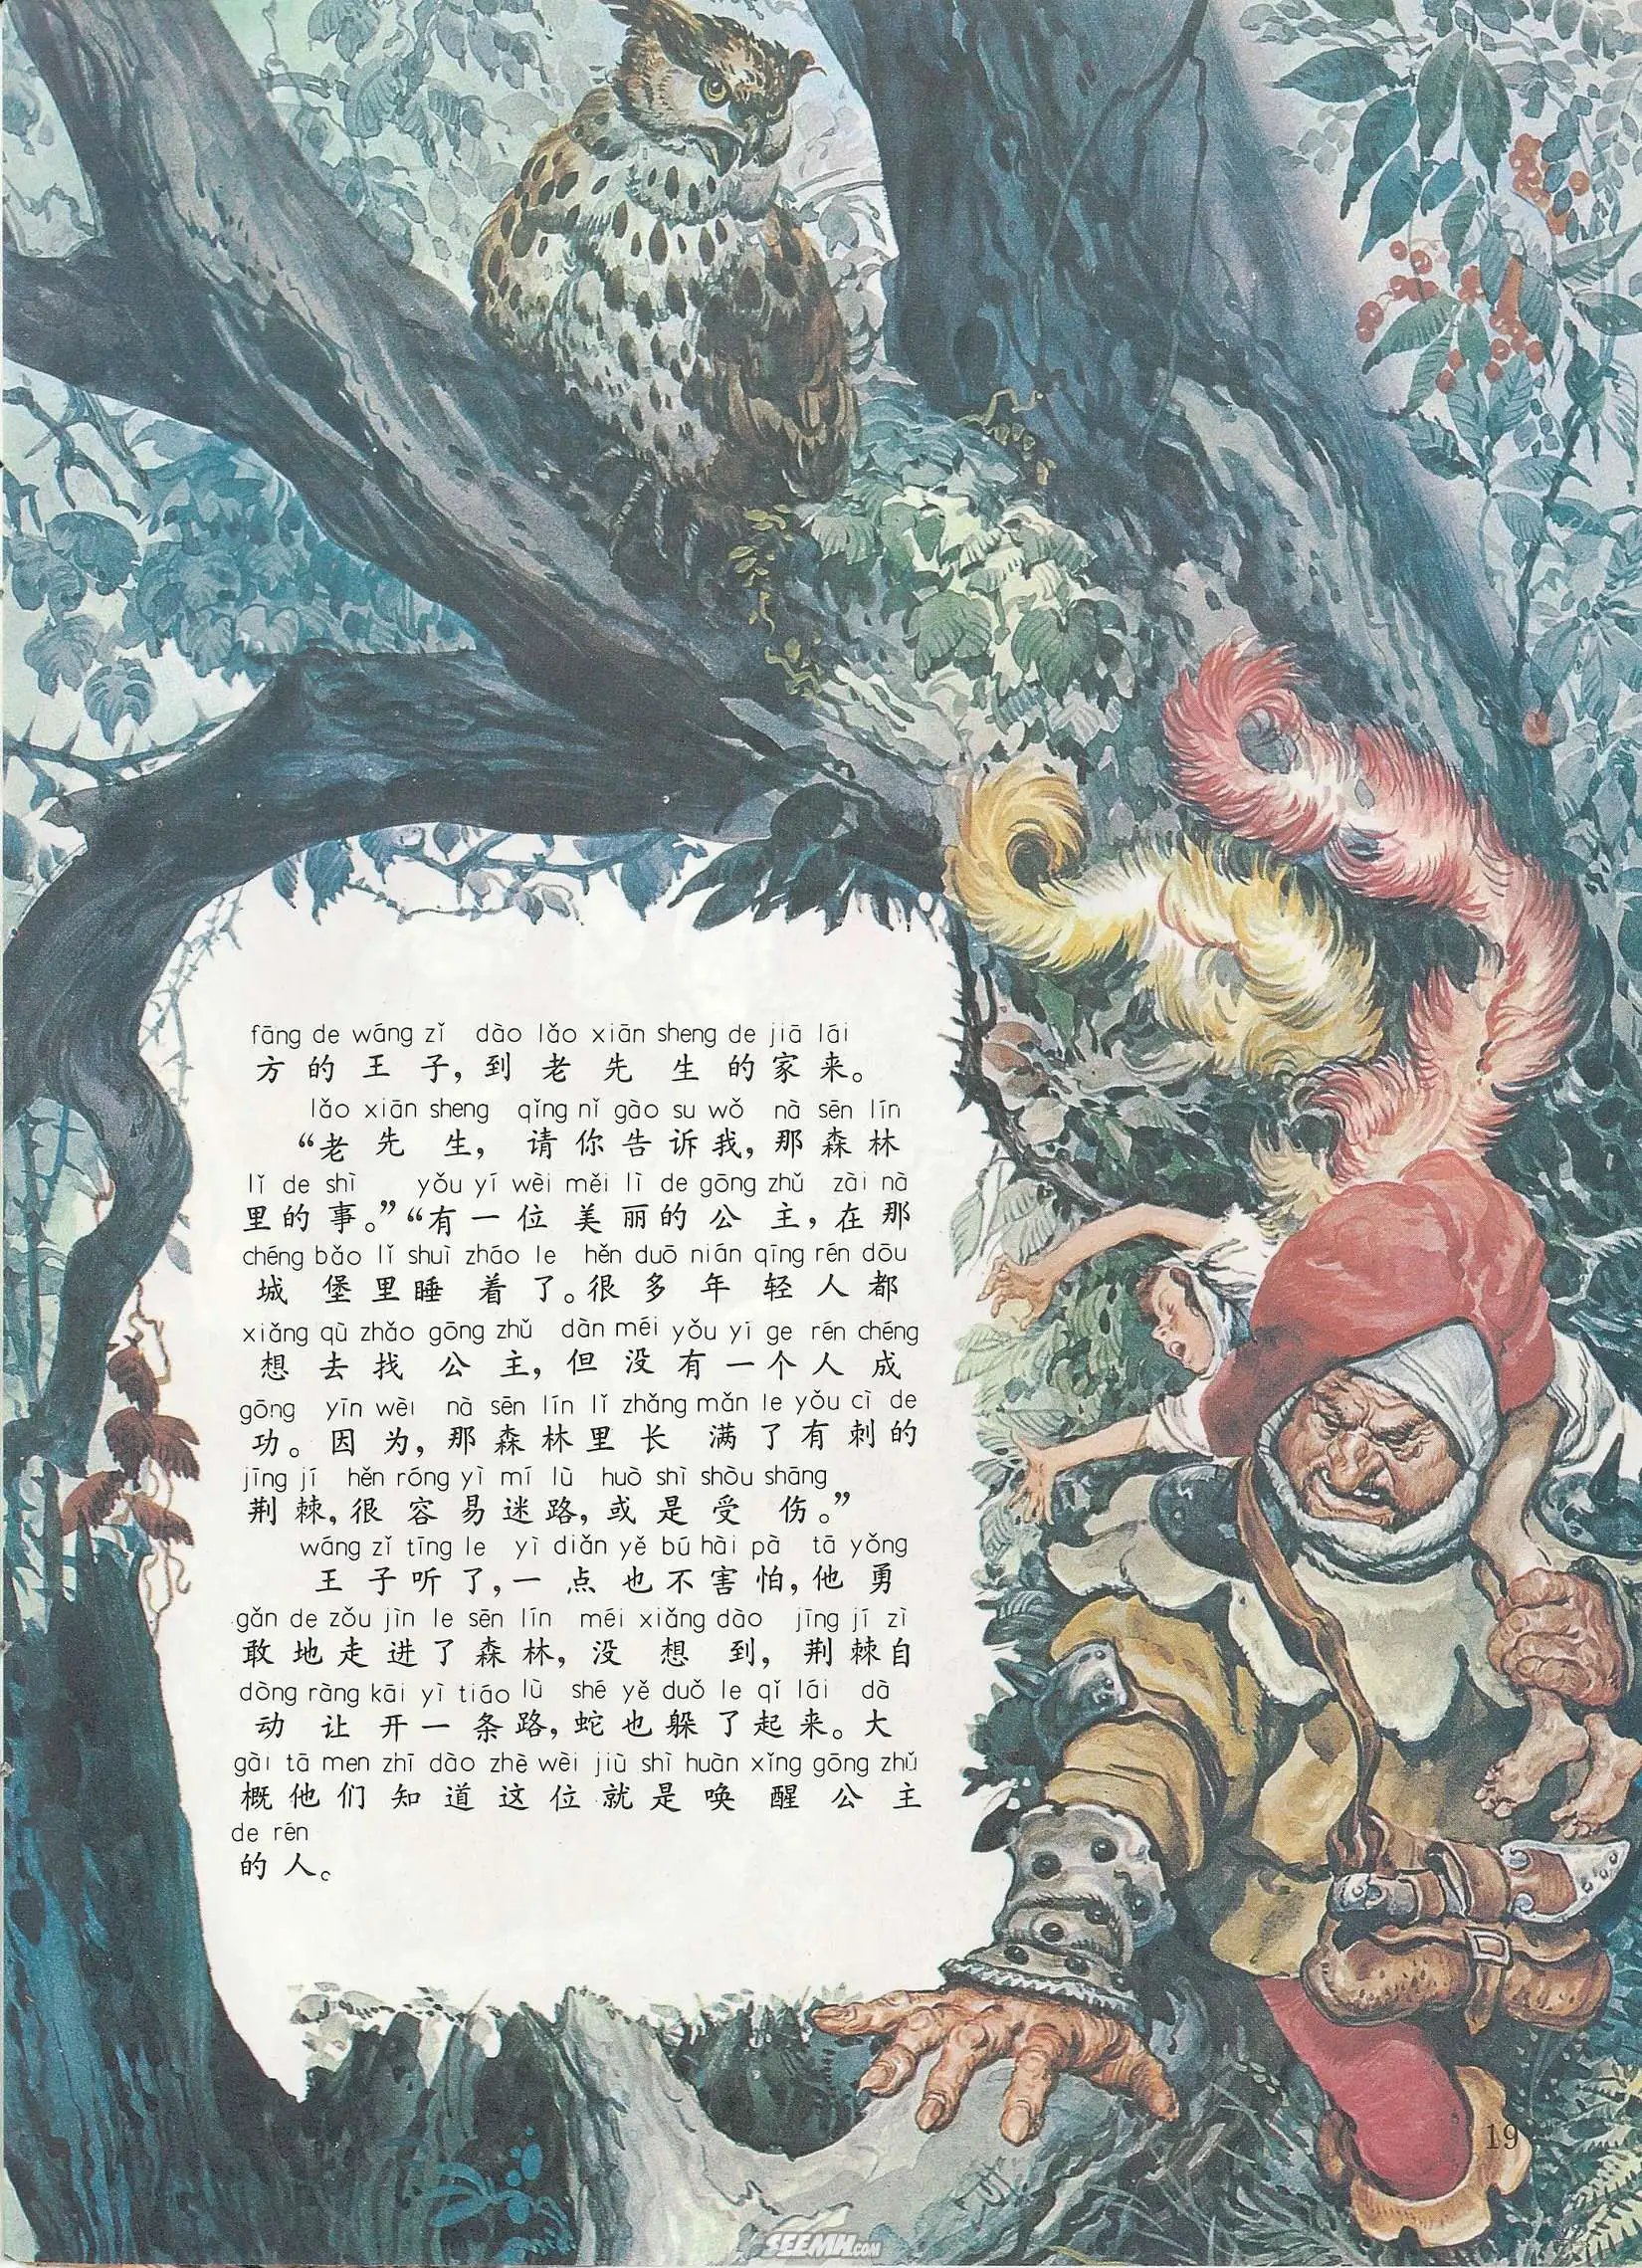 fāng de wáng zǐ dào lǎo xiān sheng de jiā lái
方的王子，到老先生的家来。
lǎo xiān sheng qǐng nǐ gào su wǒ nà sēn lín
“老先生，请你告诉我，那森林
lǐ de shì yǒu yí wèi měi lì de gōng zhǔ zài nà
里的事。”“有一位美丽的公主，在那
chéng bǎo lǐ shuì zháo le hěn duō nián qīng rén dōu
城堡里睡着了。很多年轻人都
xiǎng qù zhǎo gōng zhǔ dàn méi yǒu yí ge rén chéng
想去找公主，但没有一个人成
gōng yīn wèi nà sēn lín lǐ zhǎng mǎn le yǒu cì de
功。因为，那森林里长满了有刺的
jīng jí hěn róng yì mí lù huò shì shòu shāng
荆棘，很容易迷路，或是受伤。”
wáng zǐ tīng le yì diǎn yě bú hài pà tā yǒng
王子听了，一点也不害怕，他勇
gǎn de zǒu jìn le sēn lín méi xiǎng dào jīng jí zì
敢地走进了森林，没想到，荆棘自
dòng ràng kāi yì tiáo lù shé yě duǒ le qǐ lái dà
动让开一条路，蛇也躲了起来。大
gài tā men zhī dào zhè wèi jiù shì huàn xǐng gōng zhǔ
概他们知道这位就是唤醒公主
de rén
的人。
19
SEEMH.COM